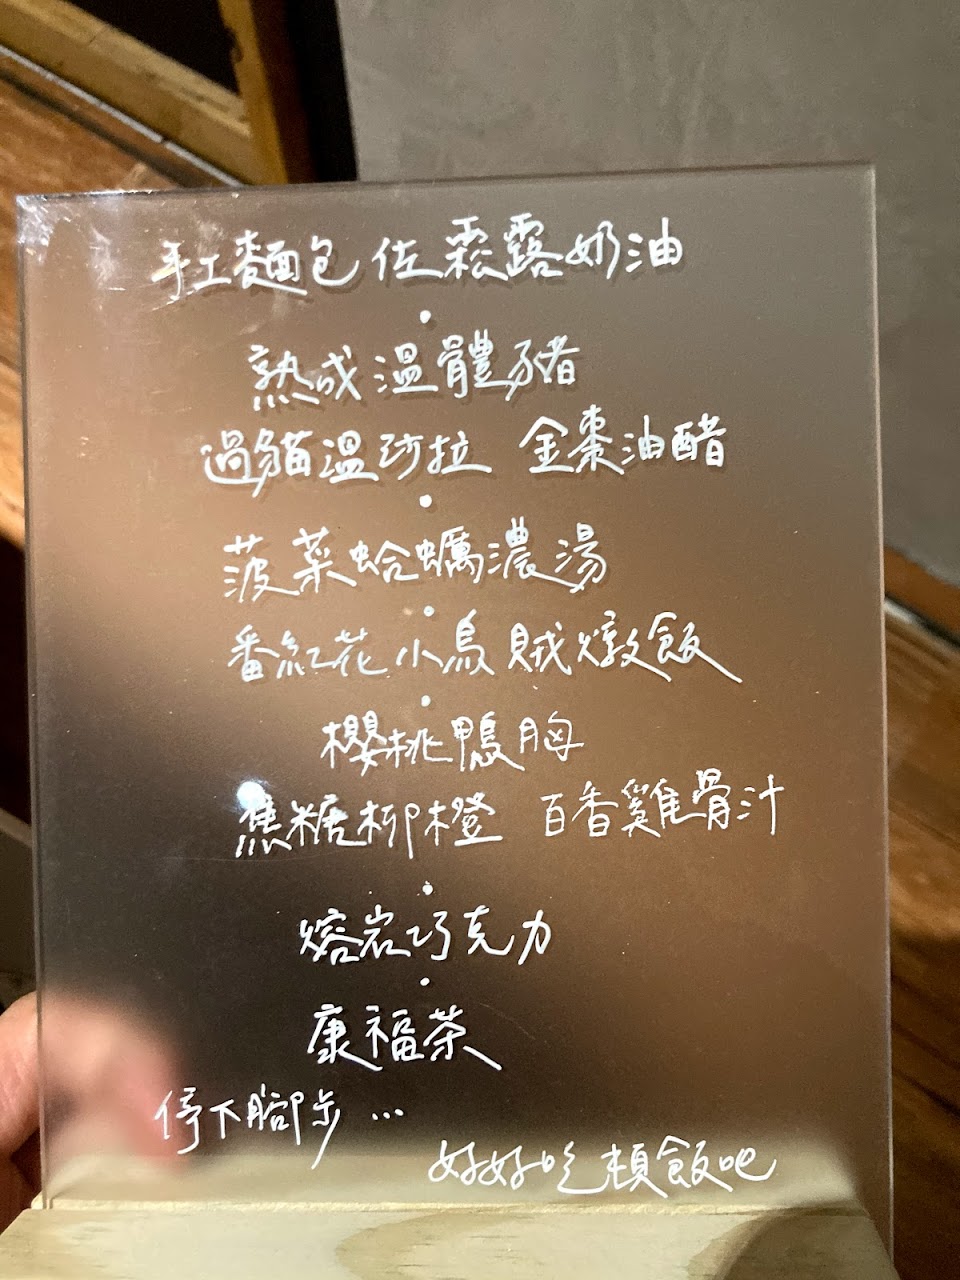 手工麵包 佐霧露奶油
熟成溫體豬
過貓溫莎拉 金棗油醋
菠菜蛤蠣濃湯
番紅花小烏賊燉飯
櫻桃鴨胸
焦糖柳橙 百香雞骨汁
熔岩巧克力
康福茶
停下腳步...
好好吃頓飯吧